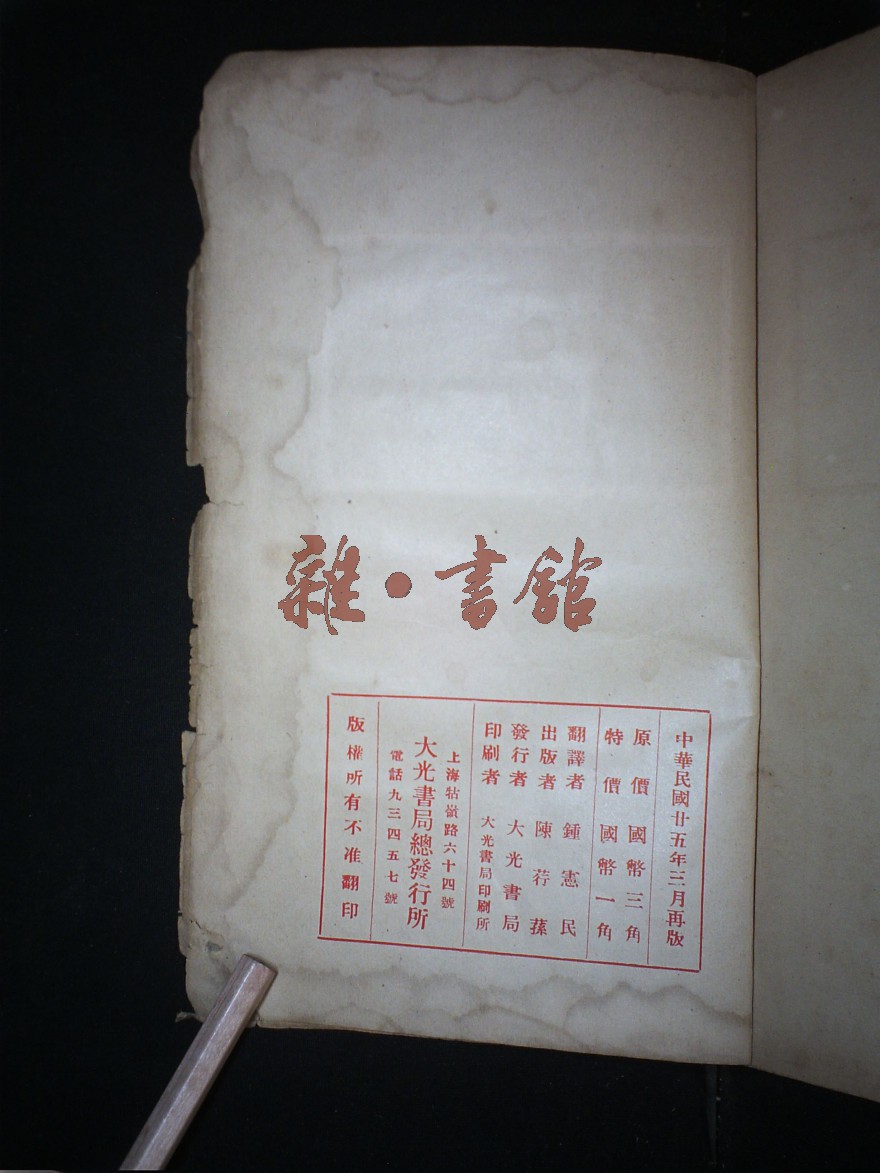 雜·書館
中華民國廿五年三月再版
原價國幣三角
特價國幣一角
翻譯者 鍾憲民
出版者 陳荇蓀
發行者 大光書局
印刷者 大光書局印刷所
上海牯嶺路六十四號
大光書局總發行所
電話九三四五七號
版權所有不准翻印